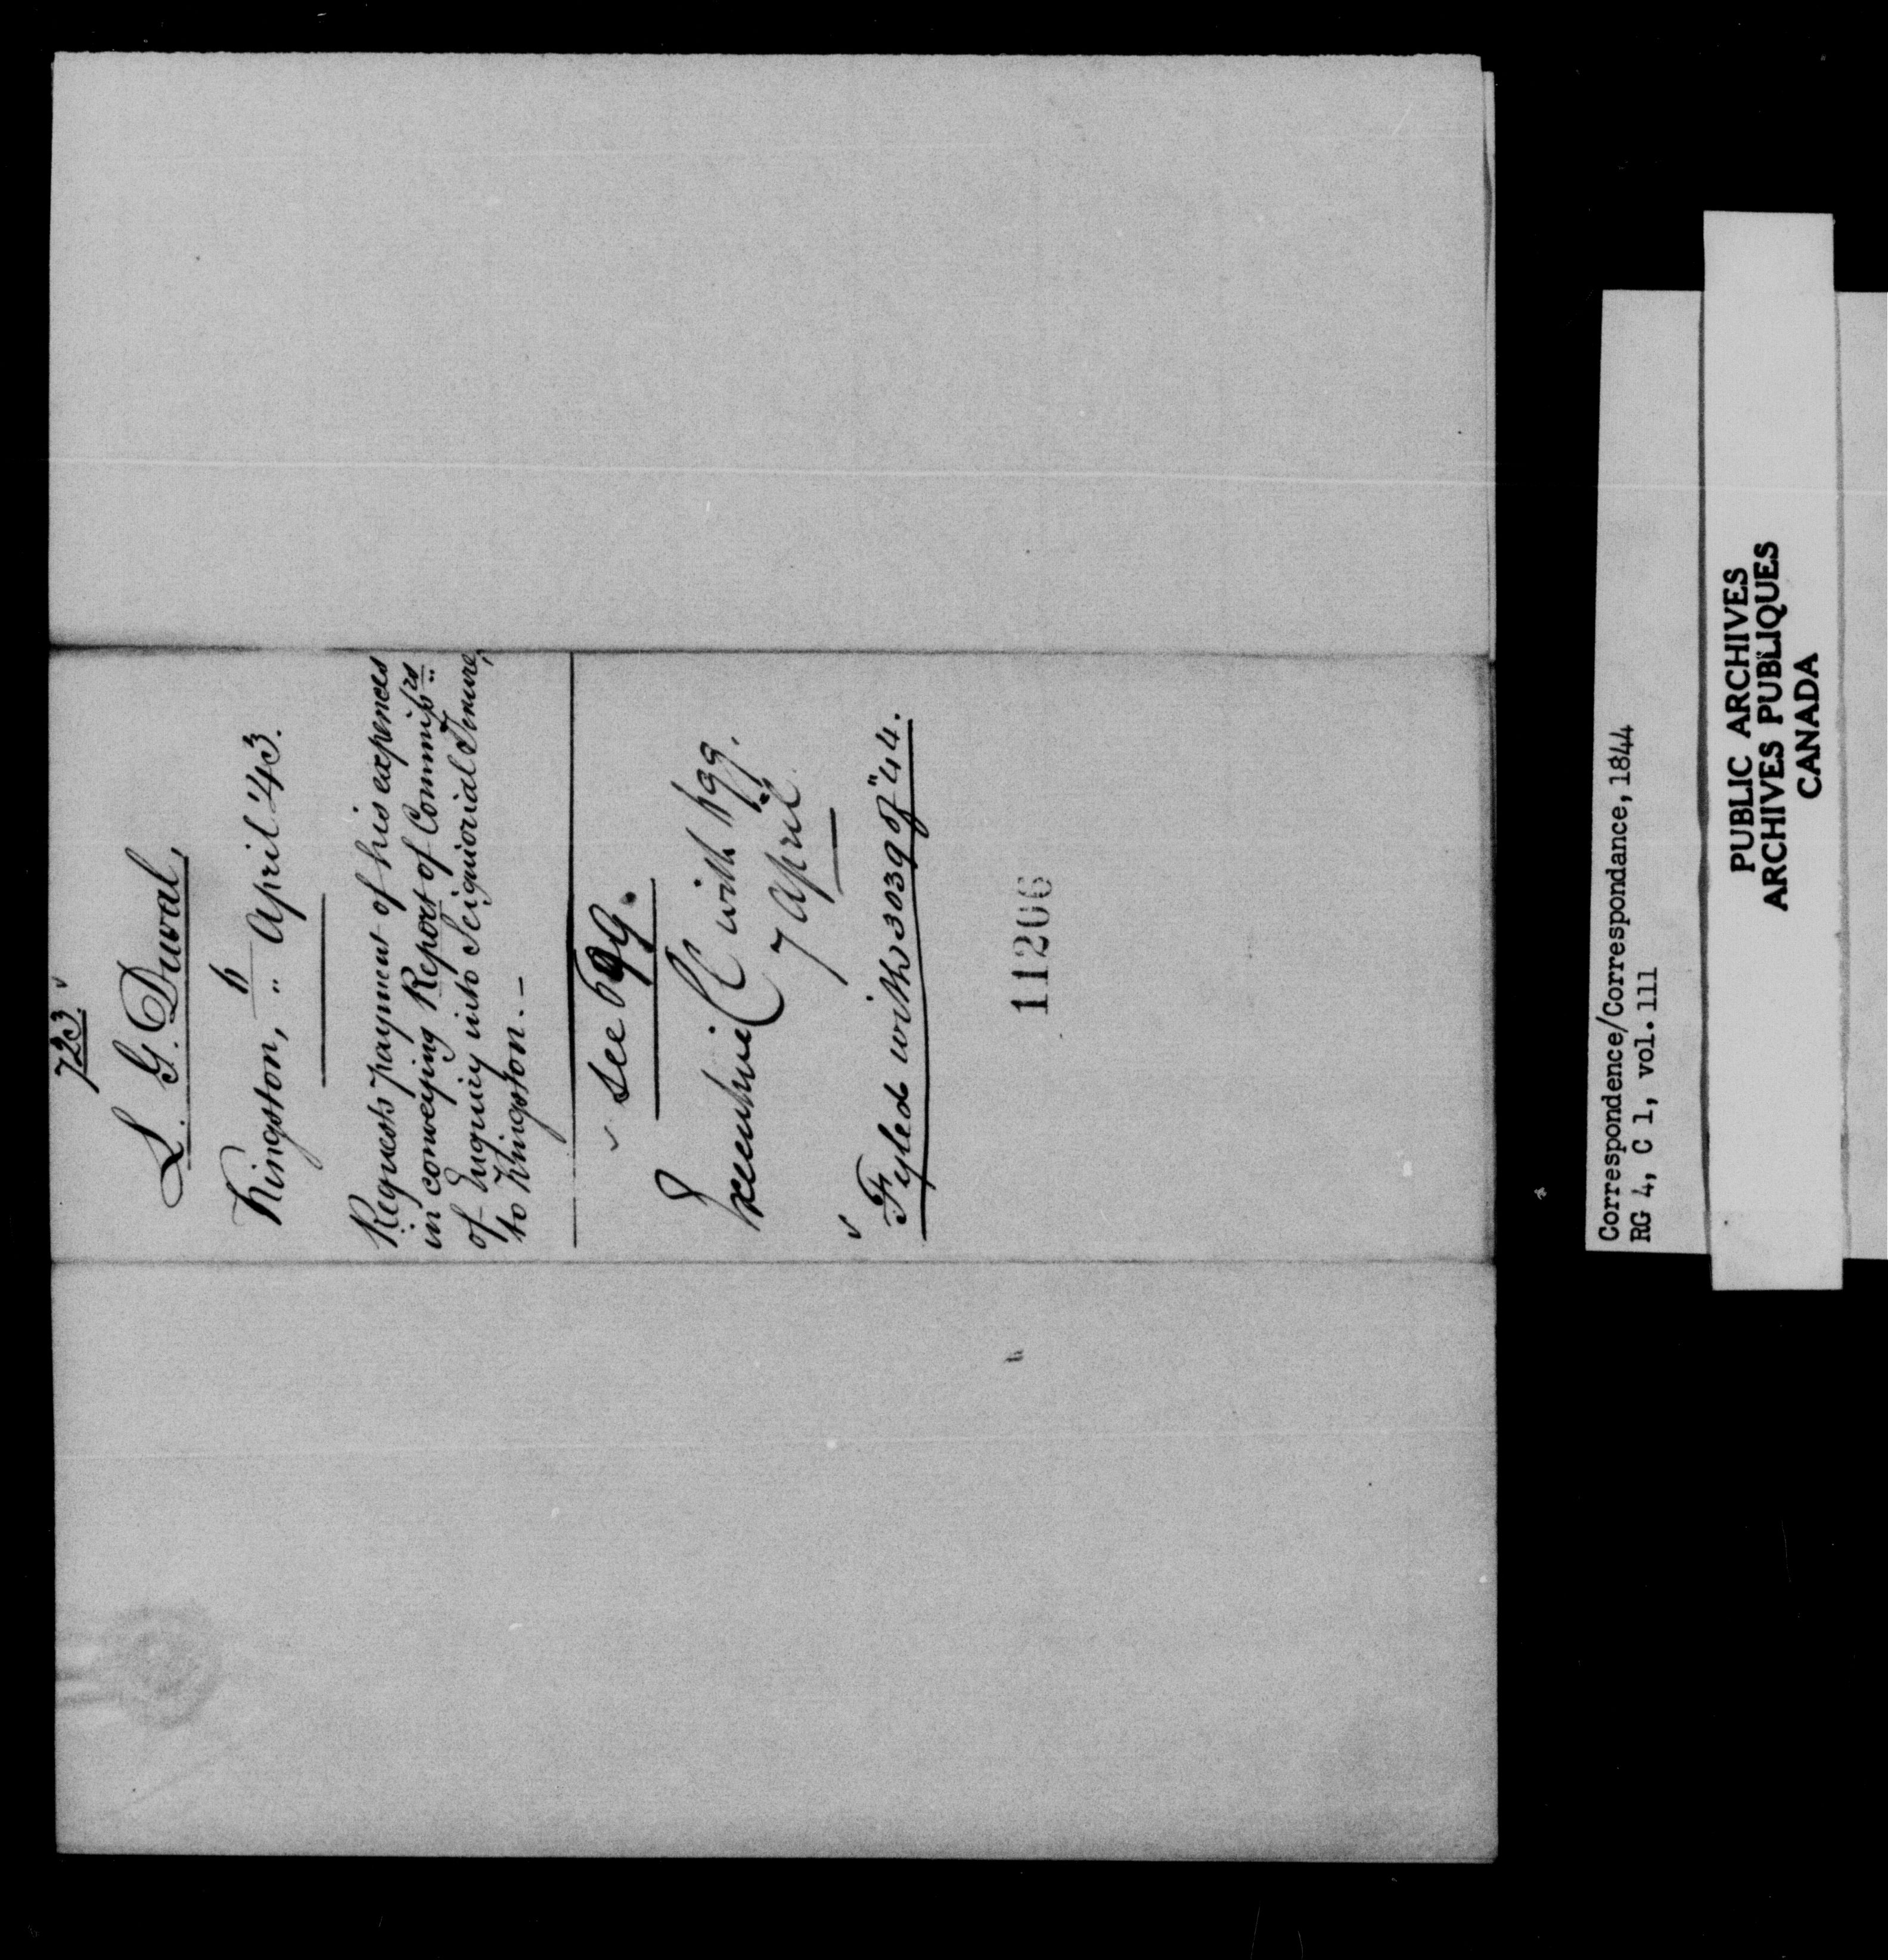 723
L. G. Duval,
Kingston, " April '43.
Requests payment of his expences
in conveying Report of Commissrs
of Enquiry into Seigniorial Tenure,
to Kingston. –
See 699.
Executive CC with 699.
7 April
Fyled with 3039 of "44.
11206
Correspondence/Correspondance, 1844
RG 4, C 1, vol. 111
PUBLIC ARCHIVES
ARCHIVES PUBLIQUES
CANADA